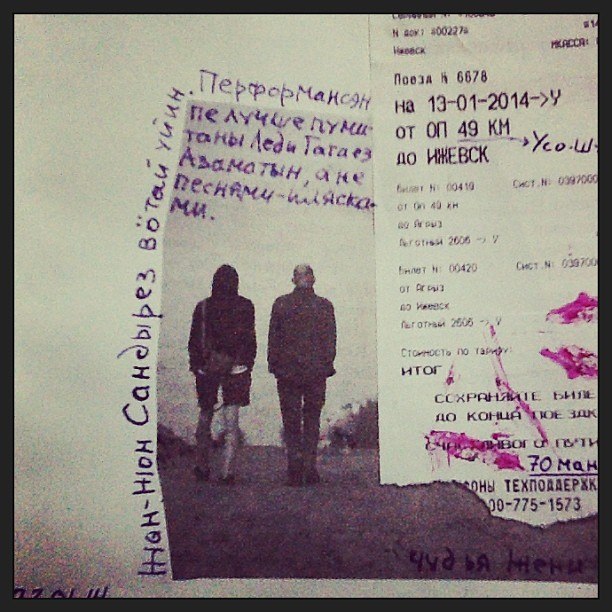 Жон-Нюн Сандырез вӧтай уйин.
Перформансэн
пе лучше пуми-
таны Леди Гагаез
Азаматын, а не
песнями-пляска-
ми.
N док: #00227#
Ижевск
Поезд N 6678
на 13-01-2014->У
от ОП 49 КМ
до ИЖЕВСК
Усо-Ш-
Билет N: 00419 Сист.N: 0397000
от ОП 49 км
до Агрыз
Льготный 2606 -> У
Билет N: 00420 Сист.N: 039700
от Агрыз
до Ижевск
Льготный 2606 -> У
Стоимость по тарифу:
ИТОГ
СОХРАНЯЙТЕ БИЛЕ
ДО КОНЦА ПОЕЗДК
СЧАСТЛИВОГО ПУТИ
70 ман
ОНЫ ТЕХПОДДЕРЖК
00-775-1573
Чудъя Жени